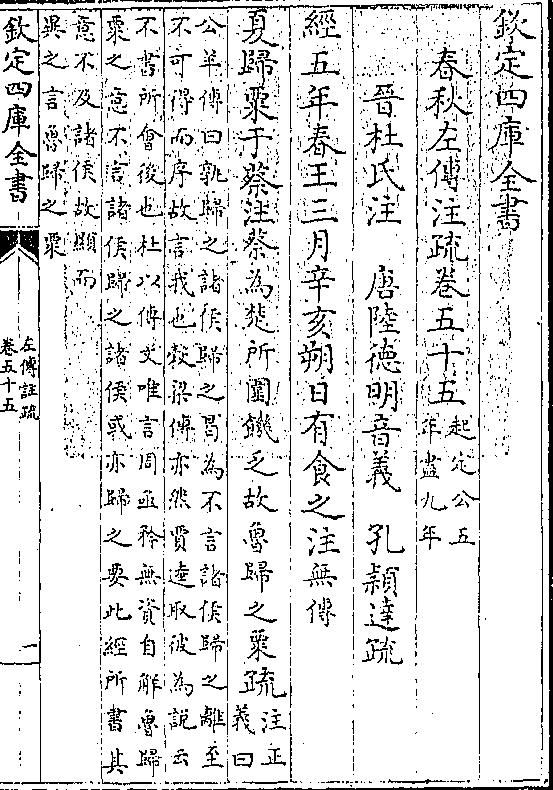 欽定四庫全書
春秋左傳注疏卷五十五起定公五年盡九年
晉杜氏注 唐陸德明音義 孔穎達疏
經五年春王三月辛亥朔日有食之注無傳
夏歸粟于蔡注蔡為楚所圍饑乏故魯歸之粟疏注正義曰
公羊傳曰孰歸之諸侯歸之曷為不言諸侯歸之離至
不可得而序故言我也穀梁傳亦然賈逵取彼為說云
不書所會後也杜以傳文唯言周亟矜無資自解魯歸
粟之意不言諸侯歸之諸侯或亦歸之要此經所書其
意不及諸侯故顯而
異之言魯歸之粟
欽定四庫全書
左傳註疏
卷五十五
一